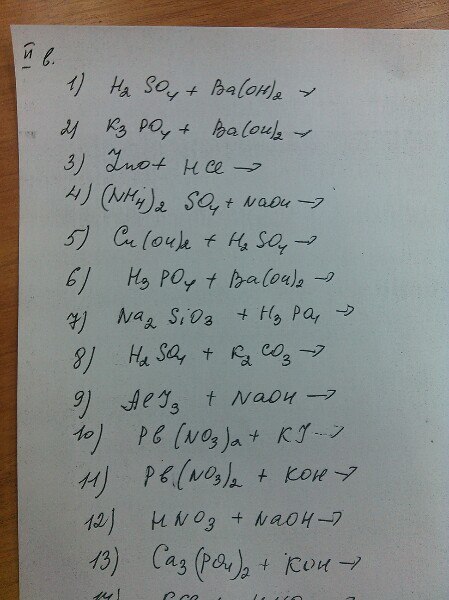 II в.
1) H2 SO4 + Ba(OH)2 →
2) K3 PO4 + Ba(OH)2 →
3) ZnO + HCl →
4) (NH4)2 SO4 + NaOH →
5) Cu(OH)2 + H2SO4 →
6) H3 PO4 + Ba(OH)2 →
7) Na2 SiO3 + H3 PO4 →
8) H2 SO4 + K2 CO3 →
9) AlJ3 + NaOH →
10) Pb(NO3)2 + KJ →
11) Pb(NO3)2 + KOH →
12) HNO3 + NaOH →
13) Ca3(PO4)2 + KOH →